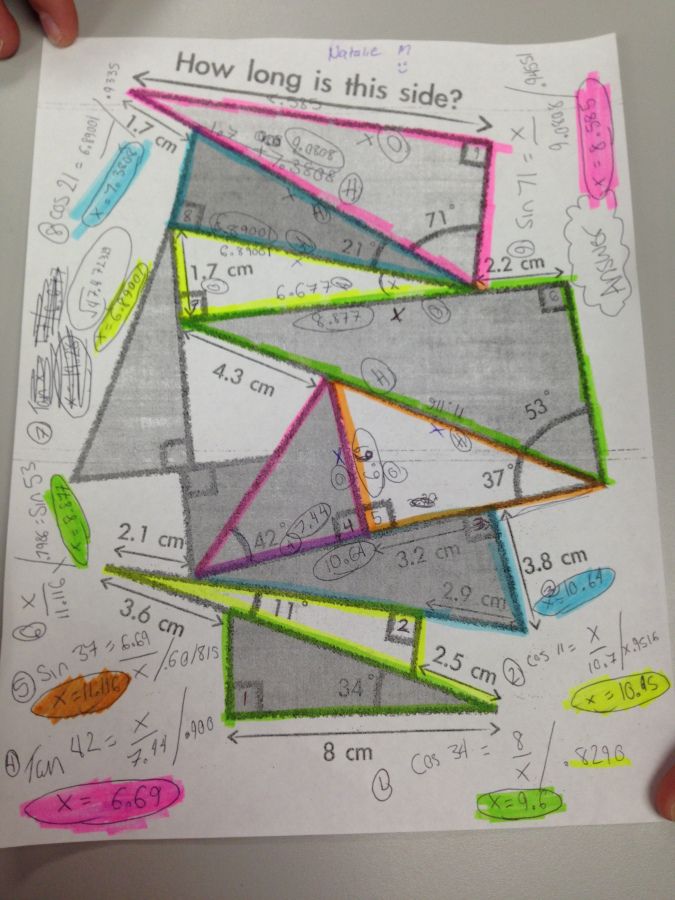 Natalie M
How long is this side?
8.585
.9335
1.7 cm
1.7
9.0808
+7.3808
x O
H
71°
8 cos 21 = 6.89001 / .9335
x = 7.3808
9 sin 71 = x / 9.0808 / .94551
x = 8.585
Answer
8
6.89001
21°
H
1.7 cm
6.677
x
2.2 cm
7
8.877
x O
6
√47.47239
x = 6.89001
7 Tan
4.3 cm
H
11.116
53°
x H
37°
x = 8.877
6 x / 11.116 = sin 53 / .7986
x 6.69 O
42°
7.44
4
5
10.64
3.2 cm
3
3.8 cm
2.1 cm
2.9 cm
x = 10.64
3.6 cm
11°
2
2.5 cm
5 Sin 37 = 6.69 / x / .601815
x = 11.116
2 cos 11 = x / 10.7 / x.9816
x = 10.45
1
34°
8 cm
4 Tan 42 = x / 7.44 / .900
x = 6.69
1 cos 34 = 8 / x / .8290
x = 9.6